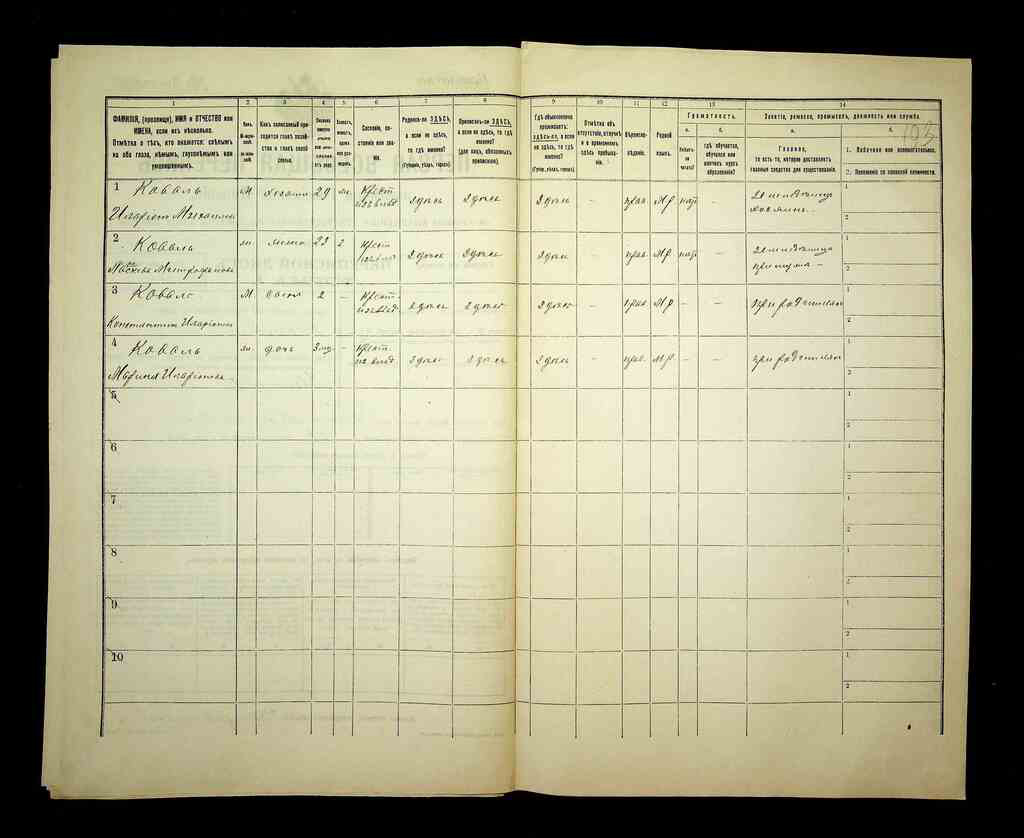 1 2 3 4 5 6 7 8 9 10 11 12 13 14
ФАМИЛІЯ, (прозвище), ИМЯ и ОТЧЕСТВО или
ИМЕНА, если ихъ нѣсколько.
Отмѣтка о тѣхъ, кто окажется: слѣпымъ
на оба глаза, нѣмымъ, глухонѣмымъ или
умалишеннымъ.
Полъ.
Какъ записанный при-
ходится главѣ хозяй-
ства и главѣ своей
семьи.
Сословіе, со-
стояніе или зва-
ніе.
Родился-ли ЗДѢСЬ,
а если не здѣсь,
то гдѣ именно?
(Губернія, уѣздъ, городъ).
Приписанъ-ли ЗДѢСЬ,
а если не здѣсь, то гдѣ
именно?
(для лицъ, обязанныхъ
припискою).
Гдѣ обыкновенно
проживаетъ:
здѣсь-ли, а если
не здѣсь, то гдѣ
именно?
(Губер., уѣздъ, городъ).
Отмѣтка объ
отсутствіи, отлучкѣ
и о временномъ
здѣсь пребыва-
ніи.
Вѣроиспо-
вѣданіе.
Родной
языкъ.
Грамотность.
а. б.
Умѣетъ-
ли
читать?
гдѣ обучается,
обучался или
кончилъ курсъ
образованія?
Занятіе, ремесло, промыселъ, должность или служба.
а. б.
Главное,
то есть то, которое доставляетъ
главныя средства для существованія.
1. Побочное или вспомогательное.
2. Положеніе по воинской повинности.
103
1 Коваль М хозяинъ 29 Крест здѣсь здѣсь здѣсь – прав. Мр – 1
Иларіонъ Михаиловъ хозяинъ 2
2 Коваль жена 23 Крест здѣсь здѣсь здѣсь – прав Мр – 1
Митрофанова – 2
3 Коваль М сынъ 2 – Крест здѣсь здѣсь здѣсь – прав Мр – – при родителяхъ 1
Константинъ Иларіоновъ 2
4 Коваль дочь – Крест здѣсь здѣсь здѣсь – прав. Мр. – – при родителяхъ 1
Марина Иларіонова 2
5 1
2
6 1
2
7 1
2
8 1
2
9 1
2
10 1
2